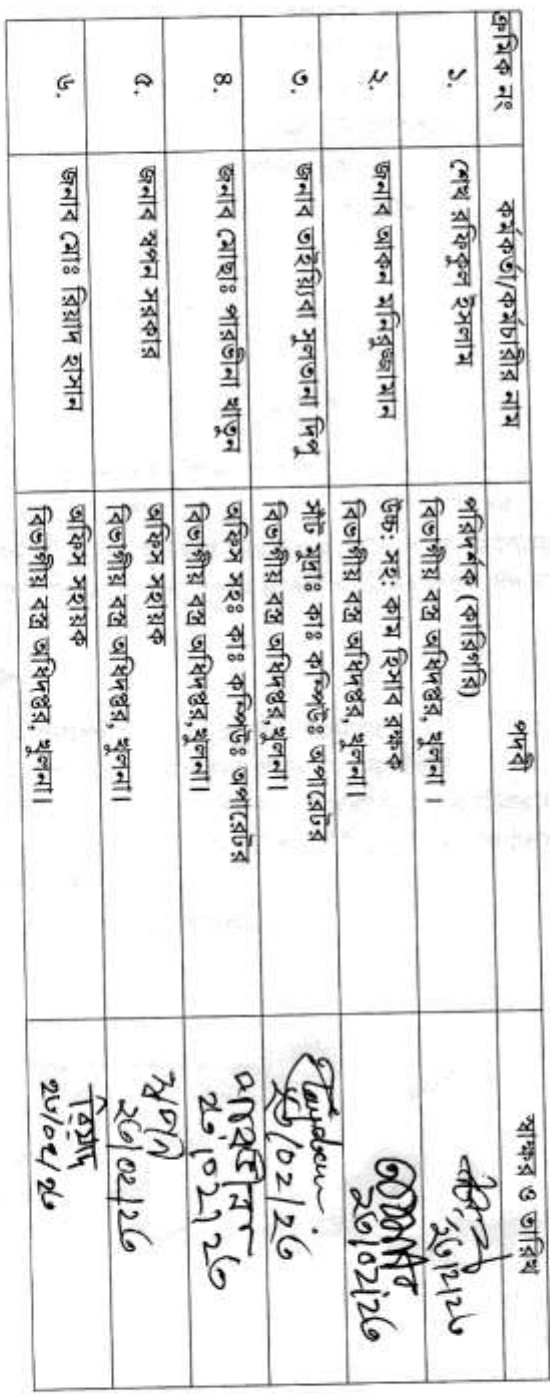 ক্রমিক নং কর্মকর্তা/কর্মচারীর নাম পদবী স্বাক্ষর ও তারিখ
১. শেখ রফিকুল ইসলাম পরিদর্শক (কারিগরি)
বিভাগীয় বস্ত্র অধিদপ্তর, খুলনা ।
২. জনাব আকন মনিরুজ্জামান উচ্চ: সহ: কাম হিসাব রক্ষক
বিভাগীয় বস্ত্র অধিদপ্তর, খুলনা। 26/02/26
৩. জনাব তাইয়্যিবা সুলতানা দিপু সাঁট মুদ্রা: কা: কম্পিউ: অপারেটর
বিভাগীয় বস্ত্র অধিদপ্তর, খুলনা। /02/26
৪. জনাব মোছা: পারভীনা খাতুন অফিস সহ: কা: কম্পিউ: অপারেটর
বিভাগীয় বস্ত্র অধিদপ্তর, খুলনা। 26,02,26
৫. জনাব স্বপন সরকার অফিস সহায়ক স্বপন
বিভাগীয় বস্ত্র অধিদপ্তর, খুলনা । 26/02/26
৬. জনাব মো: রিয়াদ হাসান অফিস সহায়ক রিয়াদ
বিভাগীয় বস্ত্র অধিদপ্তর, খুলনা। 26/02/26